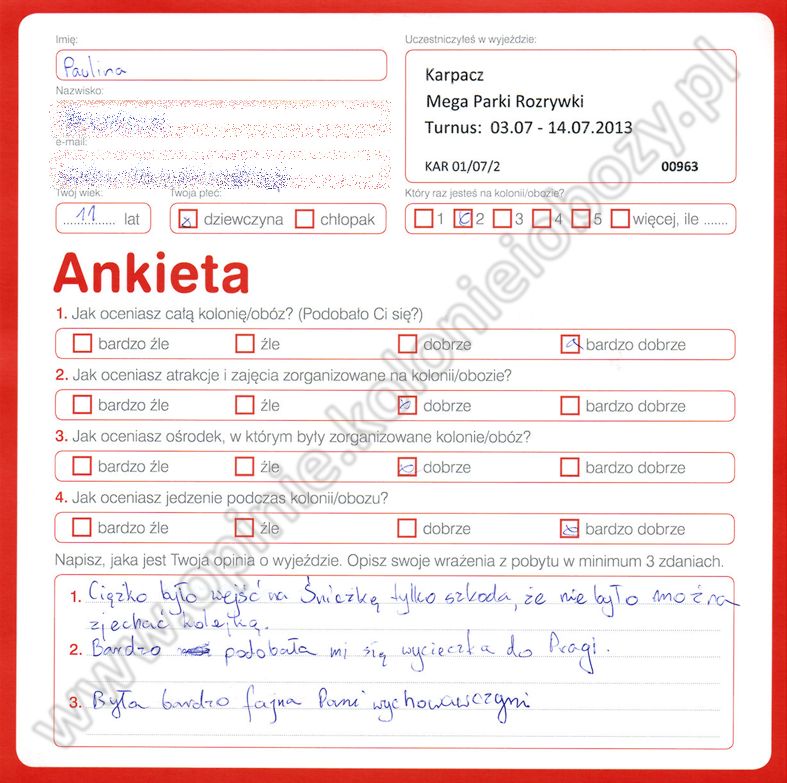 Imię:
Paulina
Nazwisko:
e-mail:
Twój wiek:
11 lat
Twoja płeć:
dziewczyna chłopak
Uczestniczyłeś w wyjeździe:
Karpacz
Mega Parki Rozrywki
Turnus: 03.07 - 14.07.2013
KAR 01/07/2 00963
Który raz jesteś na kolonii/obozie?
1 2 3 4 5 więcej, ile .......
Ankieta
1. Jak oceniasz całą kolonię/obóz? (Podobało Ci się?)
bardzo źle źle dobrze bardzo dobrze
2. Jak oceniasz atrakcje i zajęcia zorganizowane na kolonii/obozie?
bardzo źle źle dobrze bardzo dobrze
3. Jak oceniasz ośrodek, w którym były zorganizowane kolonie/obóz?
bardzo źle źle dobrze bardzo dobrze
4. Jak oceniasz jedzenie podczas kolonii/obozu?
bardzo źle źle dobrze bardzo dobrze
Napisz, jaka jest Twoja opinia o wyjeździe. Opisz swoje wrażenia z pobytu w minimum 3 zdaniach.
1. Ciężko było wejść na Śnieżkę tylko szkoda, że nie było można
zjechać kolejką.
2. Bardzo podobała mi się wycieczka do Pragi.
3. Była bardzo fajna Pani wychowawczyni
www.opinie.kolonieiobozy.pl